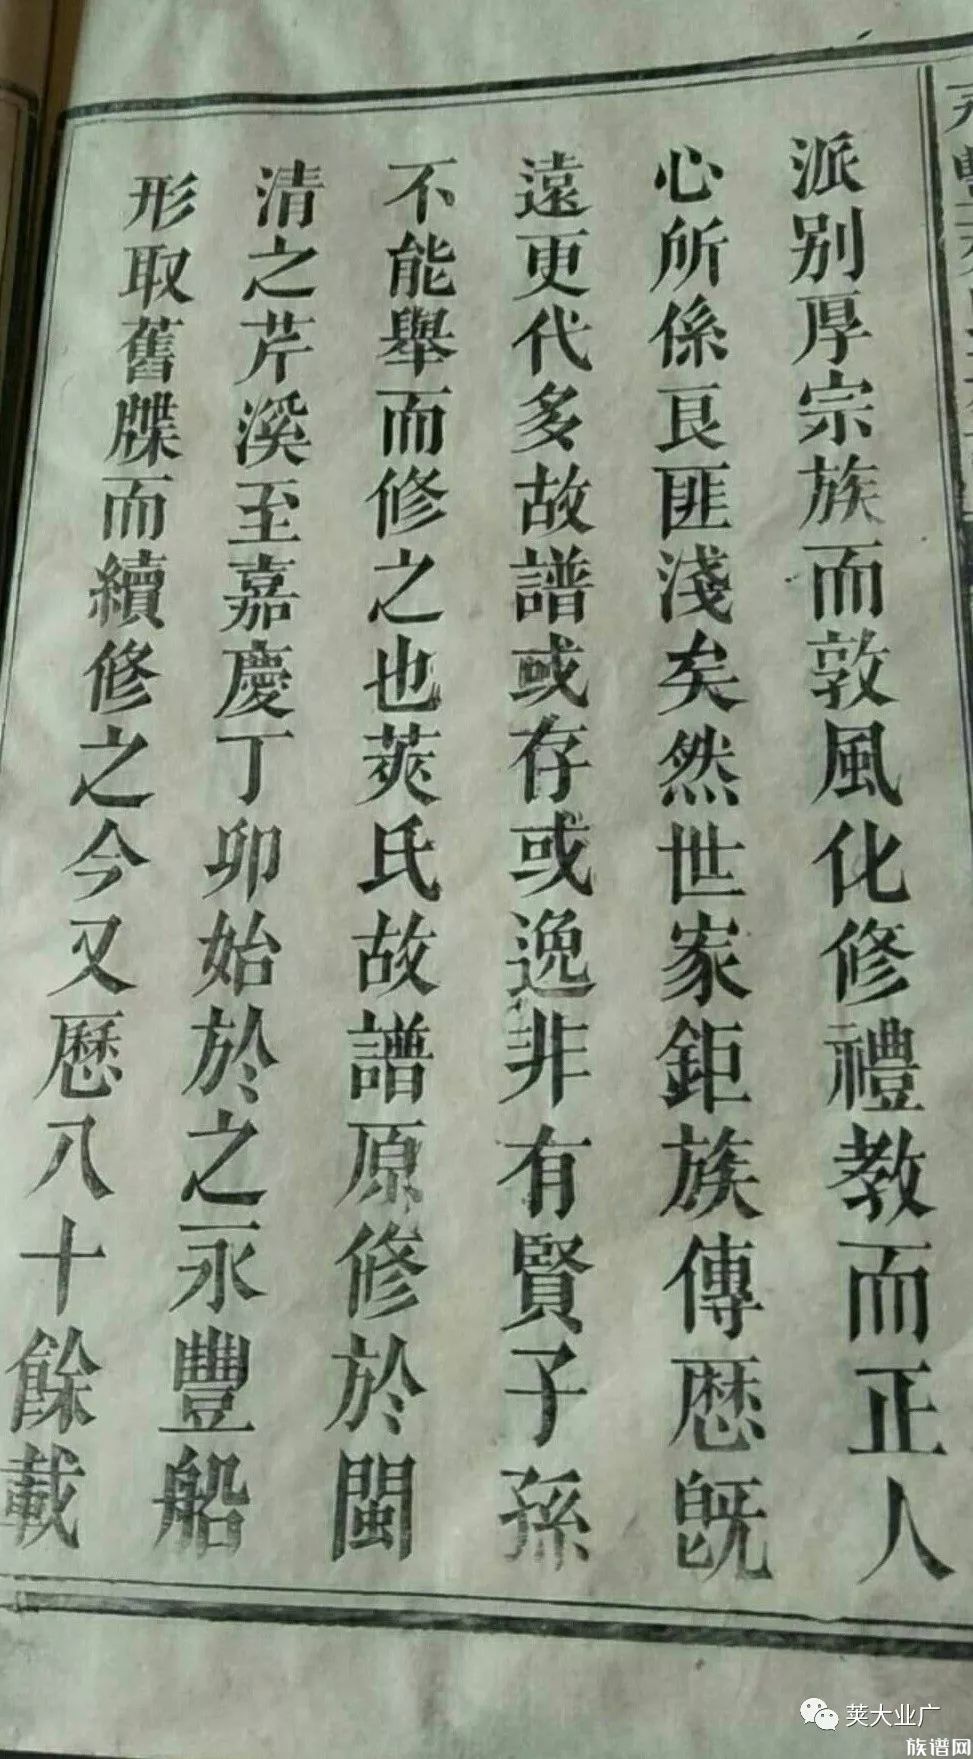 派别厚宗族而敦風化修禮教而正人
心所係良匪淺矣然世家鉅族傳歴旣
遠更代多故譜或存或逸非有賢子孫
不能舉而修之也莢氏故譜原修於閩
清之芹溪至嘉慶丁卯始於之永豐船
形取舊牒而續修之今又歴八十餘載
莢大业广
族谱网